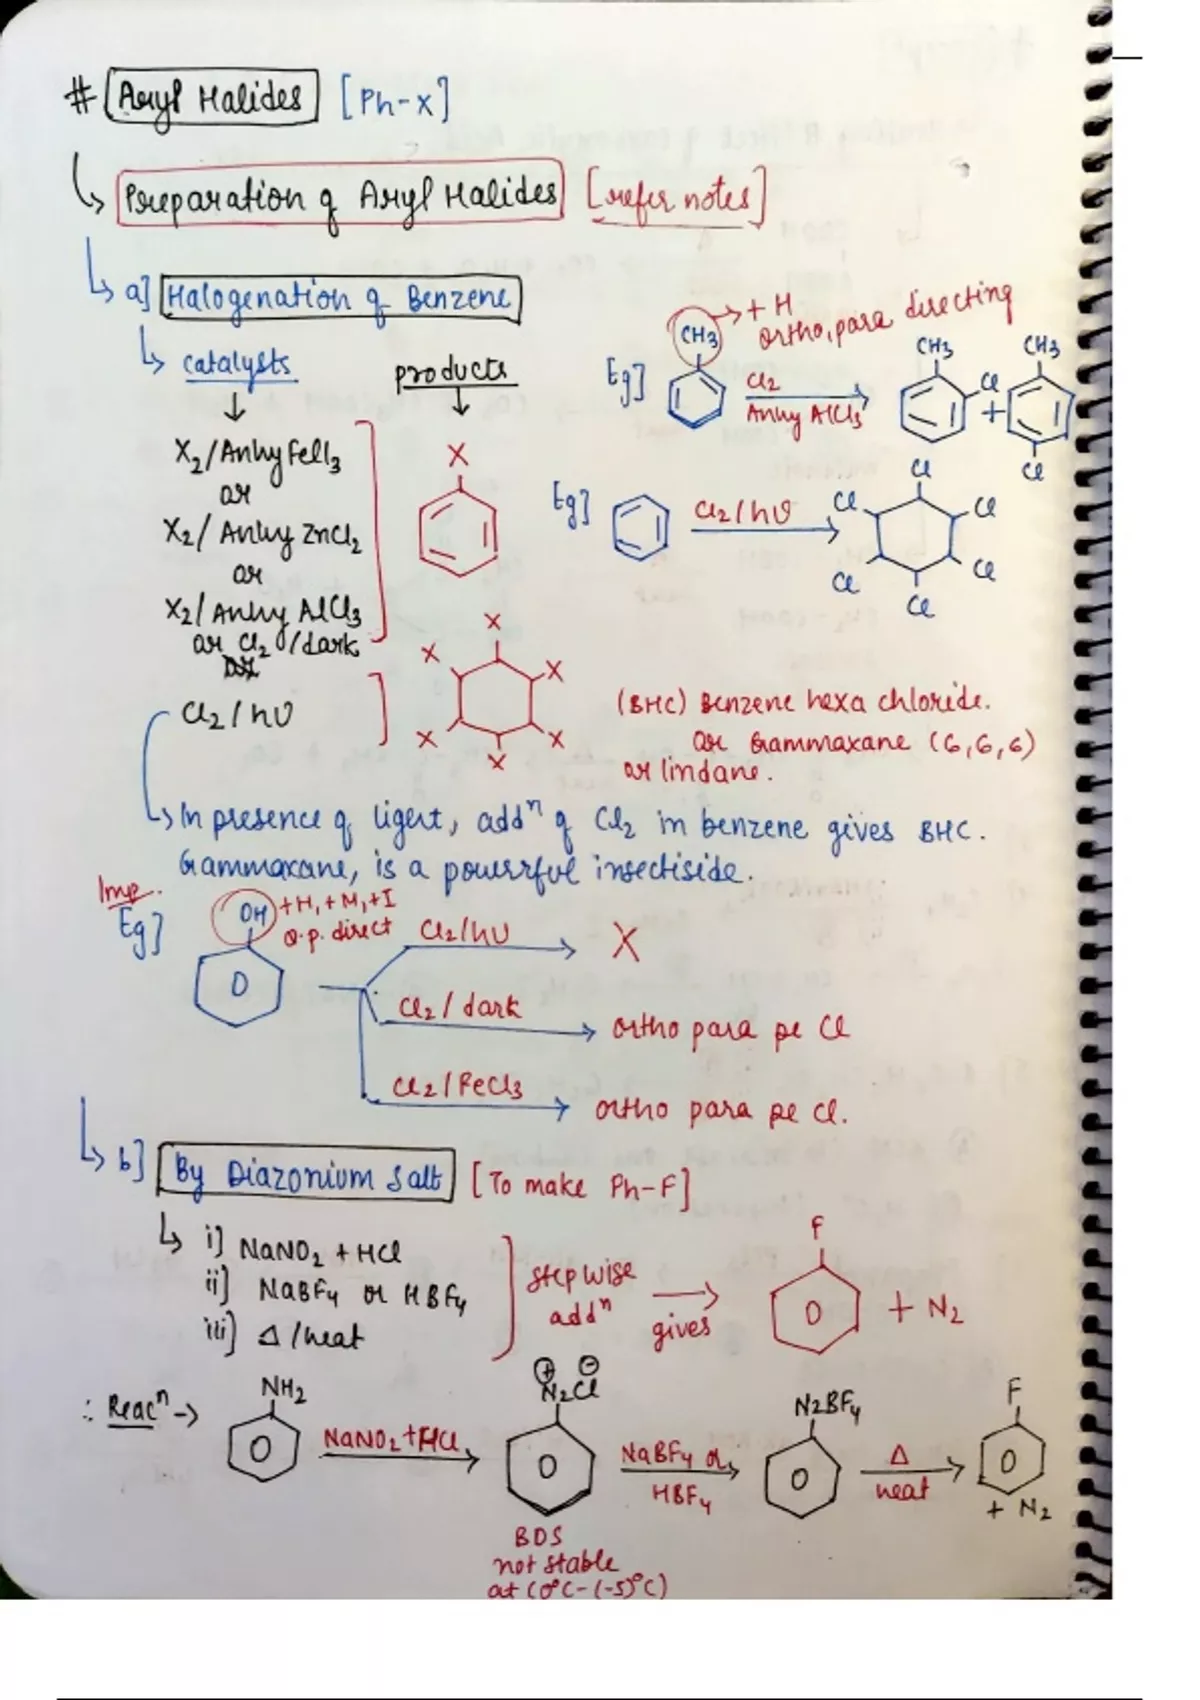 # Aryl Halides [Ph-X]
↳ Preparation of Aryl Halides [refer notes]
↳ a] Halogenation of Benzene
↳ catalysts
products
X2/Anhy FeCl3
or
X2/ Anhy ZnCl2
or
X2/ Anhy AlCl3
or Cl2/dark
Cl2/hν
X
X
X
X
X
X
X
CH3 → + H
ortho, para directing
Eg]
Cl2
Anhy AlCl3
CH3
Cl
+
CH3
Cl
Eg]
Cl2/hν
Cl
Cl
Cl
Cl
Cl
Cl
(BHC) Benzene hexa chloride.
or Gammaxane (6,6,6)
or lindane.
↳ In presence of light, addn of Cl2 in benzene gives BHC.
Gammaxane, is a powerful insectiside.
Imp.
Eg]
OH +H, +M, +I
o.p. direct
Cl2/hν → X
Cl2/ dark → ortho para pe Cl
Cl2/FeCl3 → ortho para pe Cl.
↳ b] By Diazonium Salt [To make Ph-F]
↳ i] NaNO2 + HCl
ii] NaBF4 or HBF4
iii] Δ /heat
stepwise
addn
→
gives
F
+ N2
∴ Reacn →
NH2
NaNO2+HCl
⊕ ⊖
N2Cl
BDS
not stable
at (0°C-(-5)°C)
NaBF4 or
HBF4
N2BF4
Δ
heat
F
+ N2